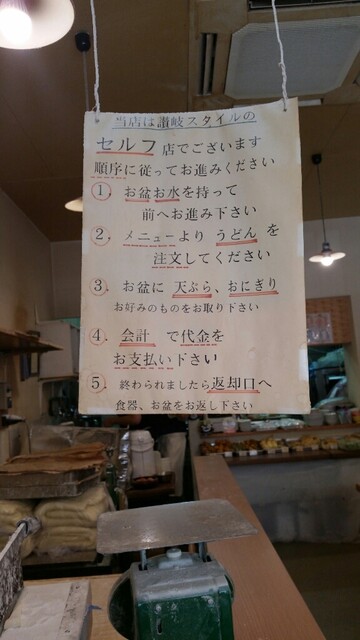 当店は讃岐スタイルの
セルフ店でございます
順序に従ってお進みください
1. お盆お水を持って
前へお進み下さい
2. メニューより うどん を
注文してください
3. お盆に 天ぷら、おにぎり
お好みのものをお取り下さい
4. 会計 で代金を
お支払い下さい
5. 終わられましたら返却口へ
食器、お盆をお返し下さい